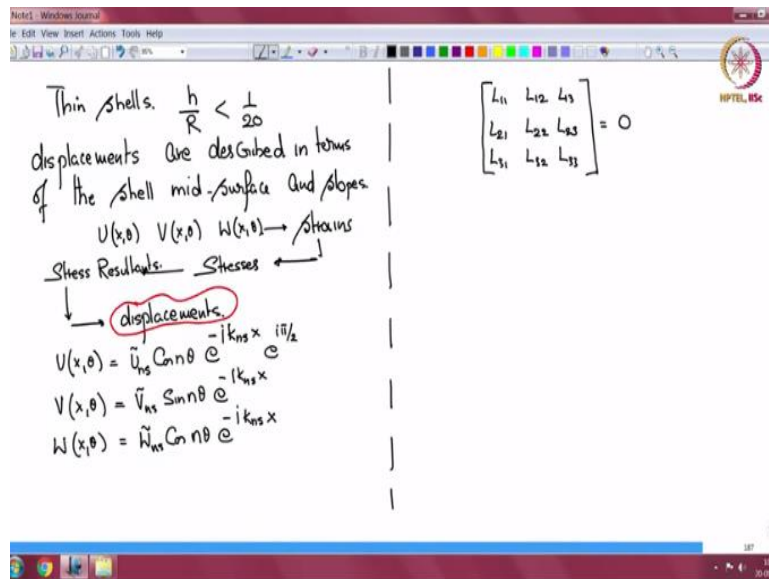 Note1 - Windows Journal
e Edit View Insert Actions Tools Help
NPTEL, IISc
Thin shells. h/R < 1/20
displacements are described in terms
of the shell mid-surface and slopes.
U(x,θ) V(x,θ) W(x,θ) → strains
Stress Resultants. Stresses ←
↓→ displacements.
U(x,θ) = Ũ_ns Cos nθ e^{-ik_ns x} e^{iπ/2}
V(x,θ) = Ṽ_ns Sin nθ e^{-ik_ns x}
W(x,θ) = W̃_ns Cos nθ e^{-ik_ns x}
[L₁₁ L₁₂ L₁₃
L₂₁ L₂₂ L₂₃ = 0
L₃₁ L₃₂ L₃₃]
187